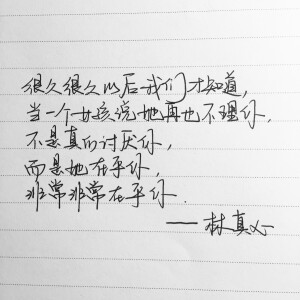 很久很久以后我们才知道,
当一个女孩说她再也不理你,
不是真的讨厌你,
而是她在乎你,
非常非常在乎你.
——林真心